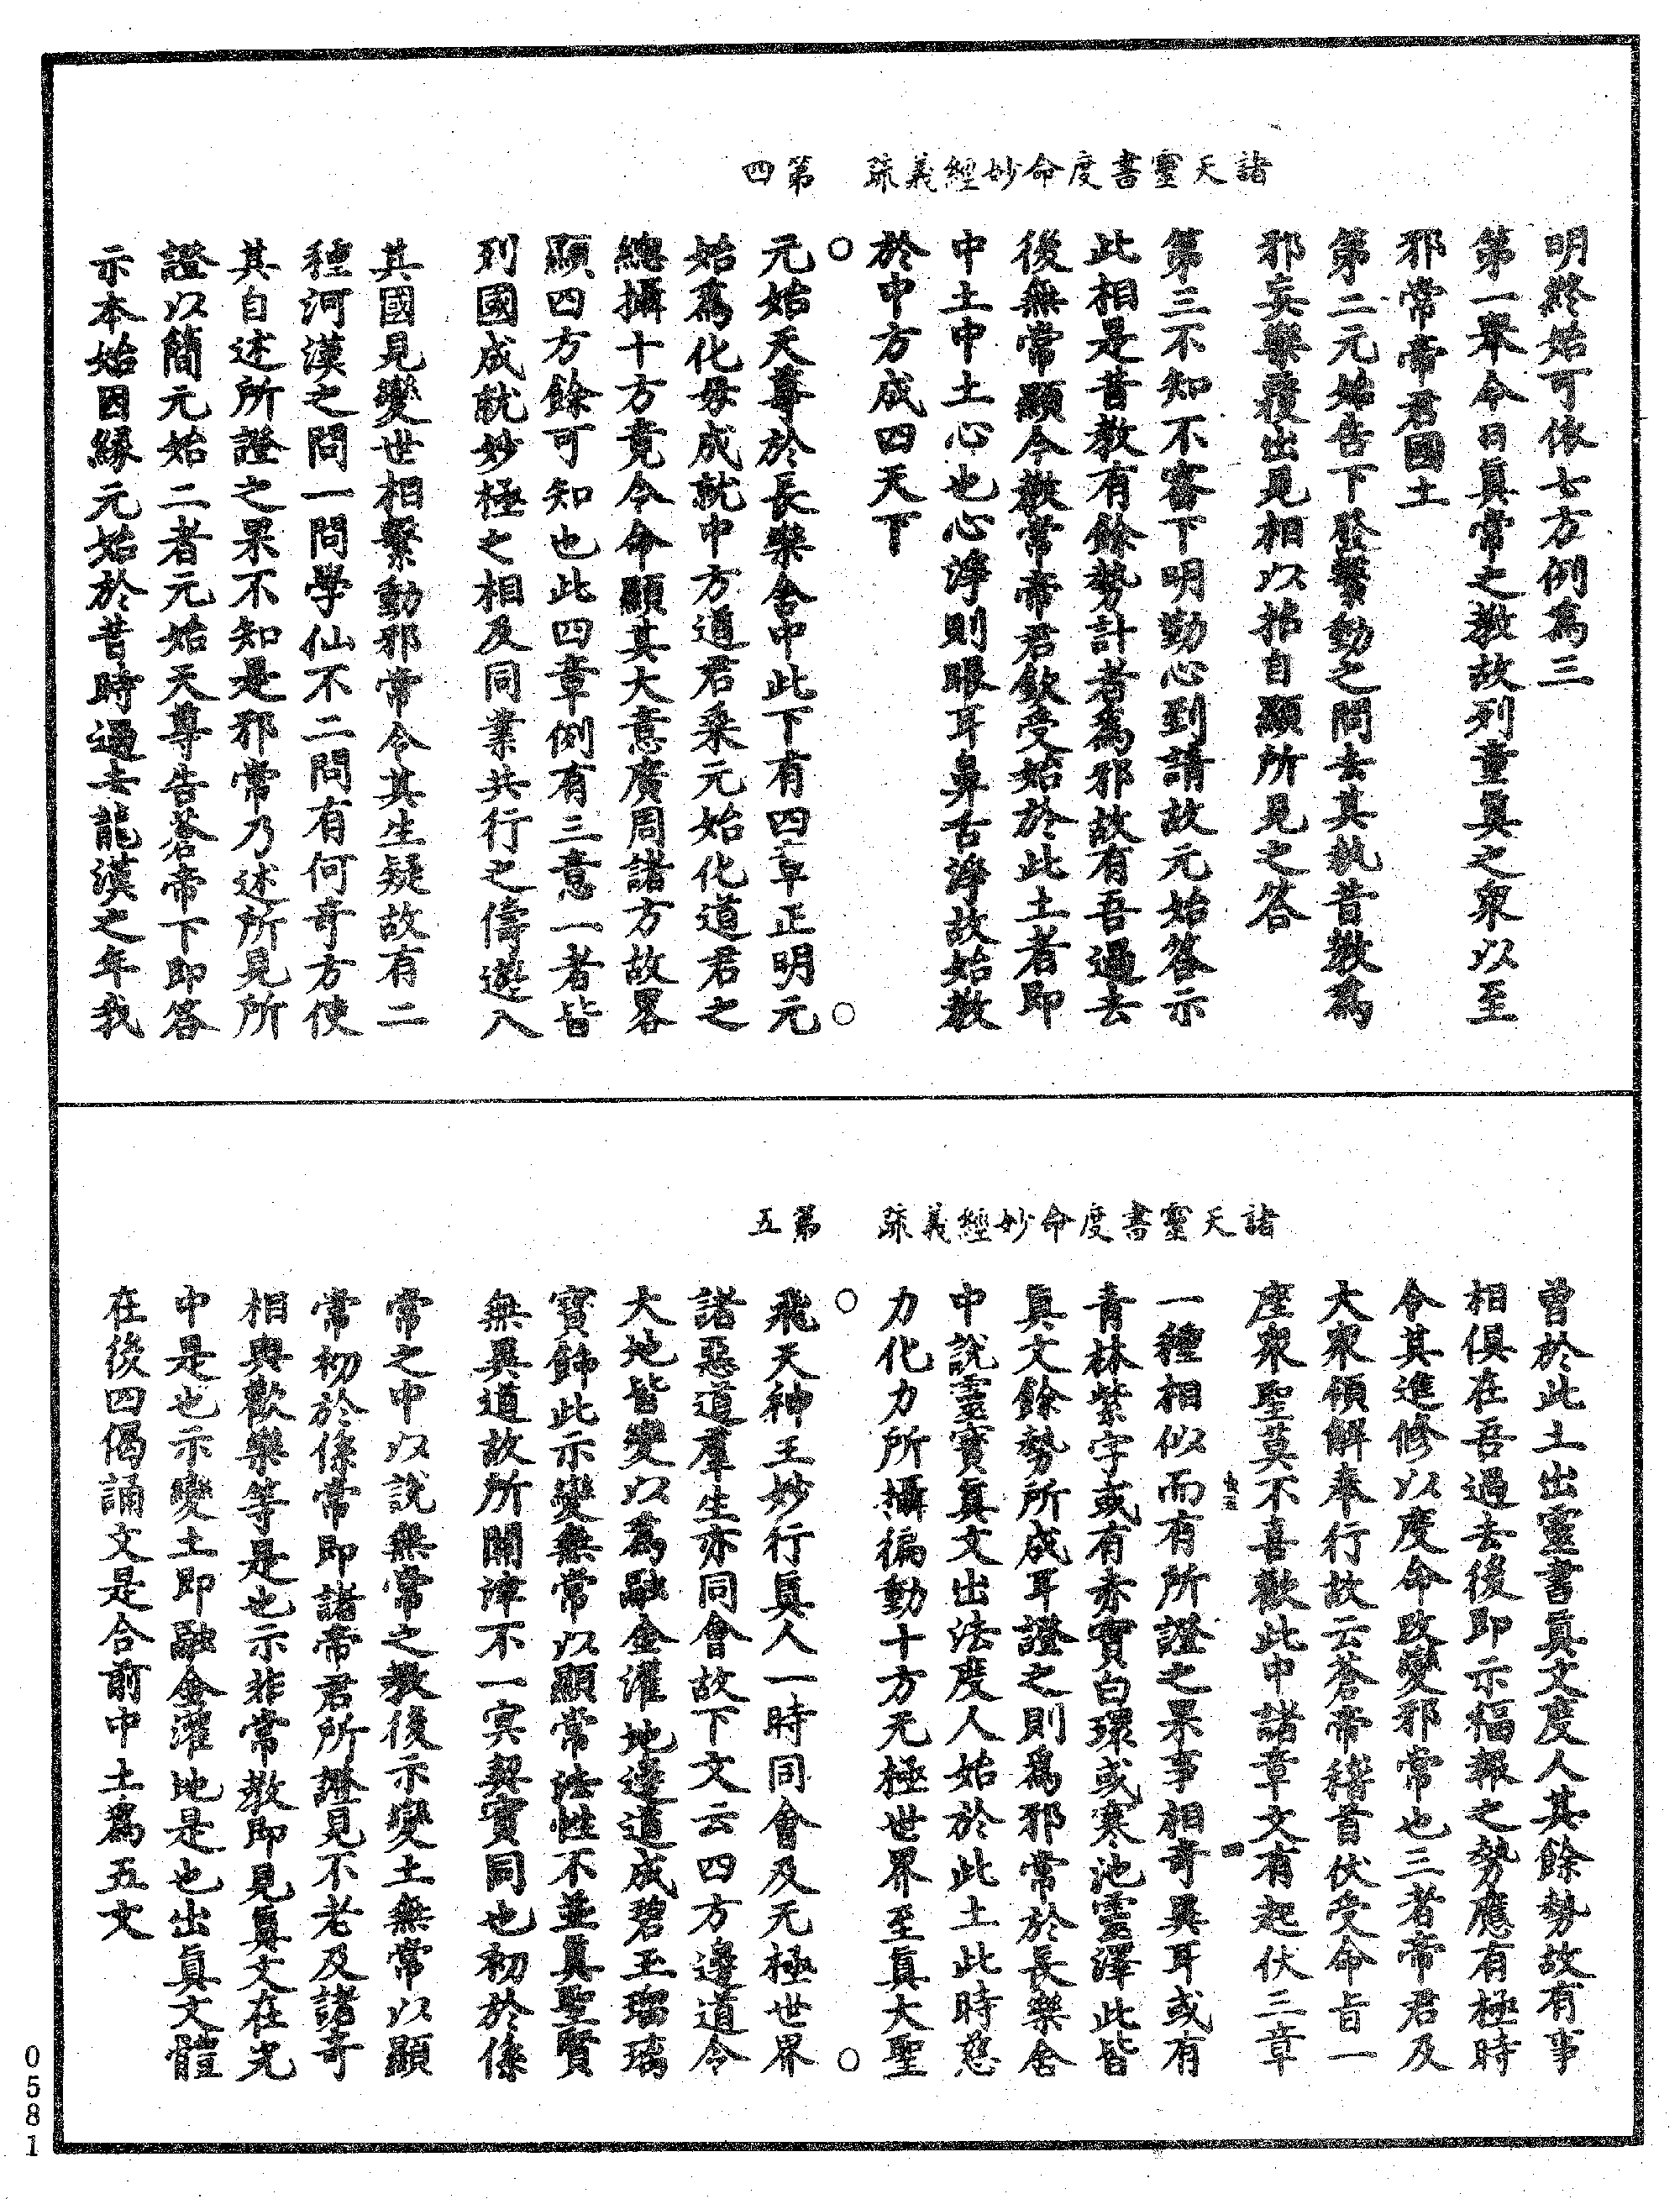 諸天靈書度命妙經義疏　第四
明終始可依七方例為三
第一舉今日眞常之教故列童眞之衆以至
邪常帝君國土
第二元始告下發繫動之問去其執昔教為
邪妄樂獲出見相以指自顯所見之答
第三不知不審下明勤心到請故元始答示
此相是昔教有餘勢計者為邪故有吾過去
後無常顯今教常帝君飲受始於此土者即
中土中土心也心淨則眼耳鼻舌淨故始教
於中方成四天下
○元始天尊於長樂舍中此下有四章正明元○
始為化母成就中方道君乘元始化道君之
總攝十方竟今命顯其大意廣周諸方故畧
顯四方餘可知也此四章例有三意一者皆
列國成就妙極之相及同業共行之儔遊入
其國見變世相繫動邪常令其生疑故有二
種河漢之問一問學仙不二問有何奇方使
其自述所證之果不知是邪常乃述所見所
證以簡元始二者元始天尊告蒼帝下即答
示本始因緣元始於昔時過去龍漢之年我
諸天靈書度命妙經義疏　第五
曾於此土出靈書眞文度人其餘勢故有事
相俱在吾過去後即示福報之勢應有極時
令其進修以度命改變邪常也三者帝君及
大衆領解奉行故云蒼帝稽首伏受命旨一
座衆聖莫不喜歡此中諸章文有起伏三章
一種相似而有所證之果事相奇異耳或有
青林紫字或有赤寶白環或寒池靈澤此皆
眞文餘勢所成耳證之則為邪常於長樂舍
中說靈寶眞文出法度人始於此土此時慈
力化力所攝徧動十方无極世界至眞大聖
○飛天神王妙行眞人一時同會及无極世界○
諸惡道羣生亦同會故下文云四方邊道令
大地皆變以為融金灌地邊道成碧玉瑠璃
寶飾此示變無常以顯常法性不並眞聖賢
無異道故所開津不一寔契實同也初於係
常之中以說無常之教後示變土無常以顯
常初於係常即諸帝君所證見不老及諸奇
相與歡樂等是也示非常教即見眞文在光
中是也示變土即融金灌地是也出眞文體
在後四偈誦文是合前中土為五文
0581